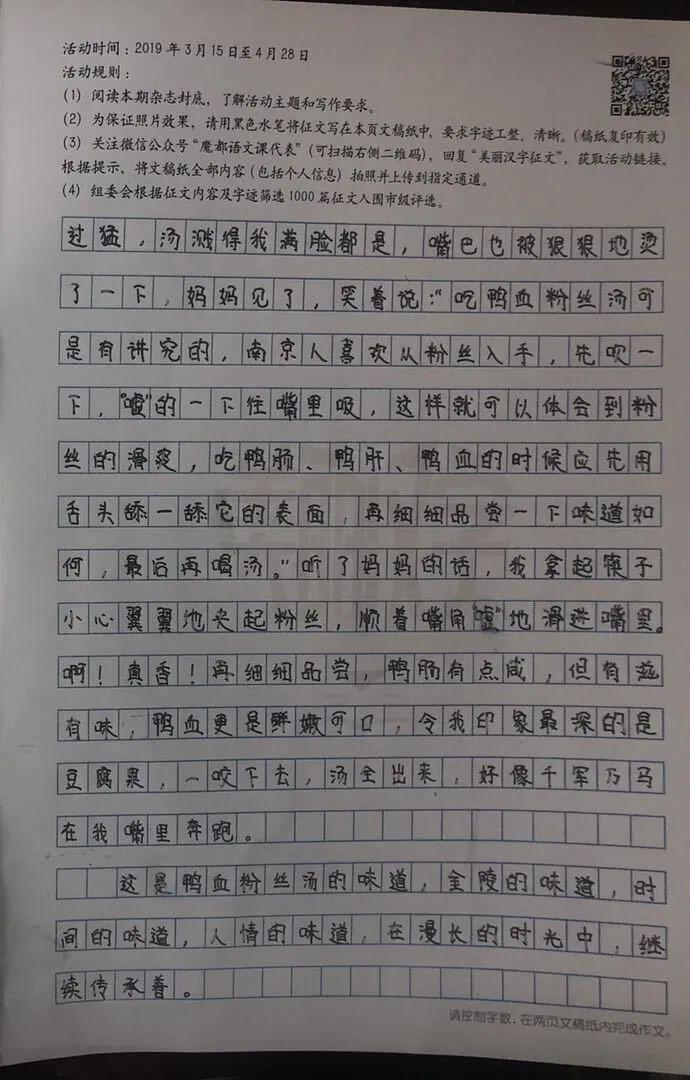 活动时间：2019年3月15日至4月28日
活动规则：
(1) 阅读本期杂志封底，了解活动主题和写作要求。
(2) 为保证照片效果，请用黑色水笔将征文写在本页文稿纸中，要求字迹工整、清晰。(稿纸复印有效)
(3) 关注微信公众号“魔都语文课代表”(可扫描右侧二维码)，回复“美丽汉字征文”，获取活动链接。
根据提示，将文稿纸全部内容(包括个人信息)拍照并上传到指定通道。
(4) 组委会根据征文内容及字迹筛选1000篇征文入围市级评选。
过猛，汤溅得我满脸都是，嘴巴也被狠狠地烫
了一下，妈妈见了，笑着说：“吃鸭血粉丝汤可
是有讲究的，南京人喜欢从粉丝入手，先吹一
下，“嘘”的一下往嘴里吸，这样就可以体会到粉
丝的滑爽，吃鸭肠、鸭肝、鸭血的时候应先用
舌头舔一舔它的表面，再细细品尝一下味道如
何，最后再喝汤。”听了妈妈的话，我拿起筷子
小心翼翼地夹起粉丝，顺着嘴角“嘘”地滑进嘴里。
啊！真香！再细细品尝，鸭肠有点咸，但有滋
有味，鸭血更是鲜嫩可口，令我印象最深的是
豆腐果，一咬下去，汤全出来，好像千军万马
在我嘴里奔跑。
这是鸭血粉丝汤的味道，金陵的味道，时
间的味道，人情的味道，在漫长的时光中，继
续传承着。
请控制字数，在两页文稿纸内完成作文。